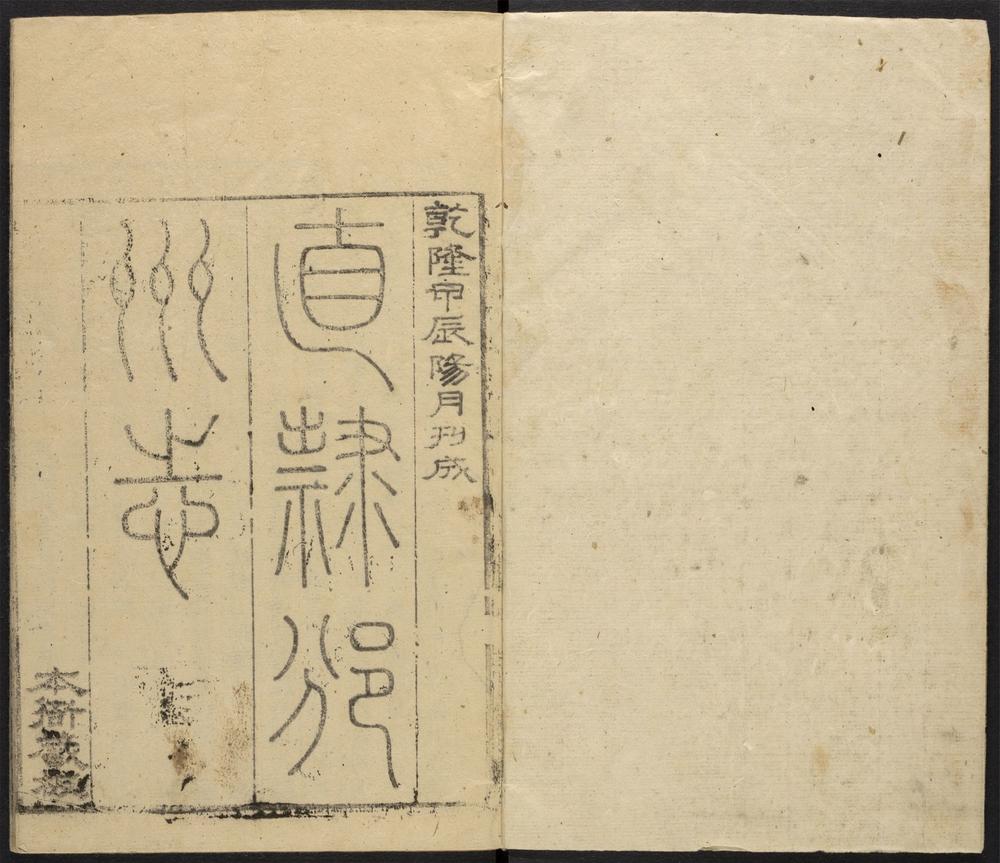 乾隆甲辰陽月刋成
直隸邠
州志
本衙藏板